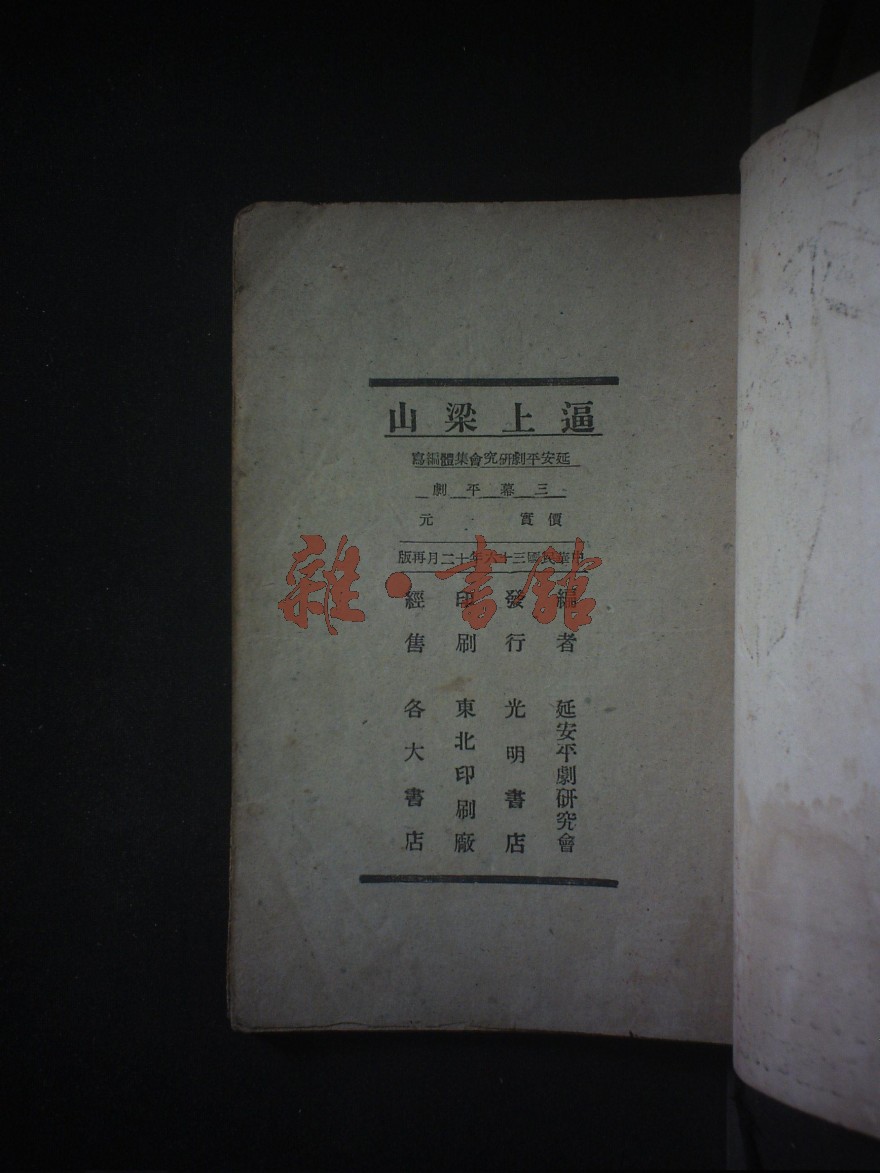 逼上梁山
延安平劇研究會集體編寫
三幕平劇
實價 元
中華民國三十六年十二月再版
編者 延安平劇研究會
發行 光明書店
印刷 東北印刷廠
經售 各大書店
雜·書館